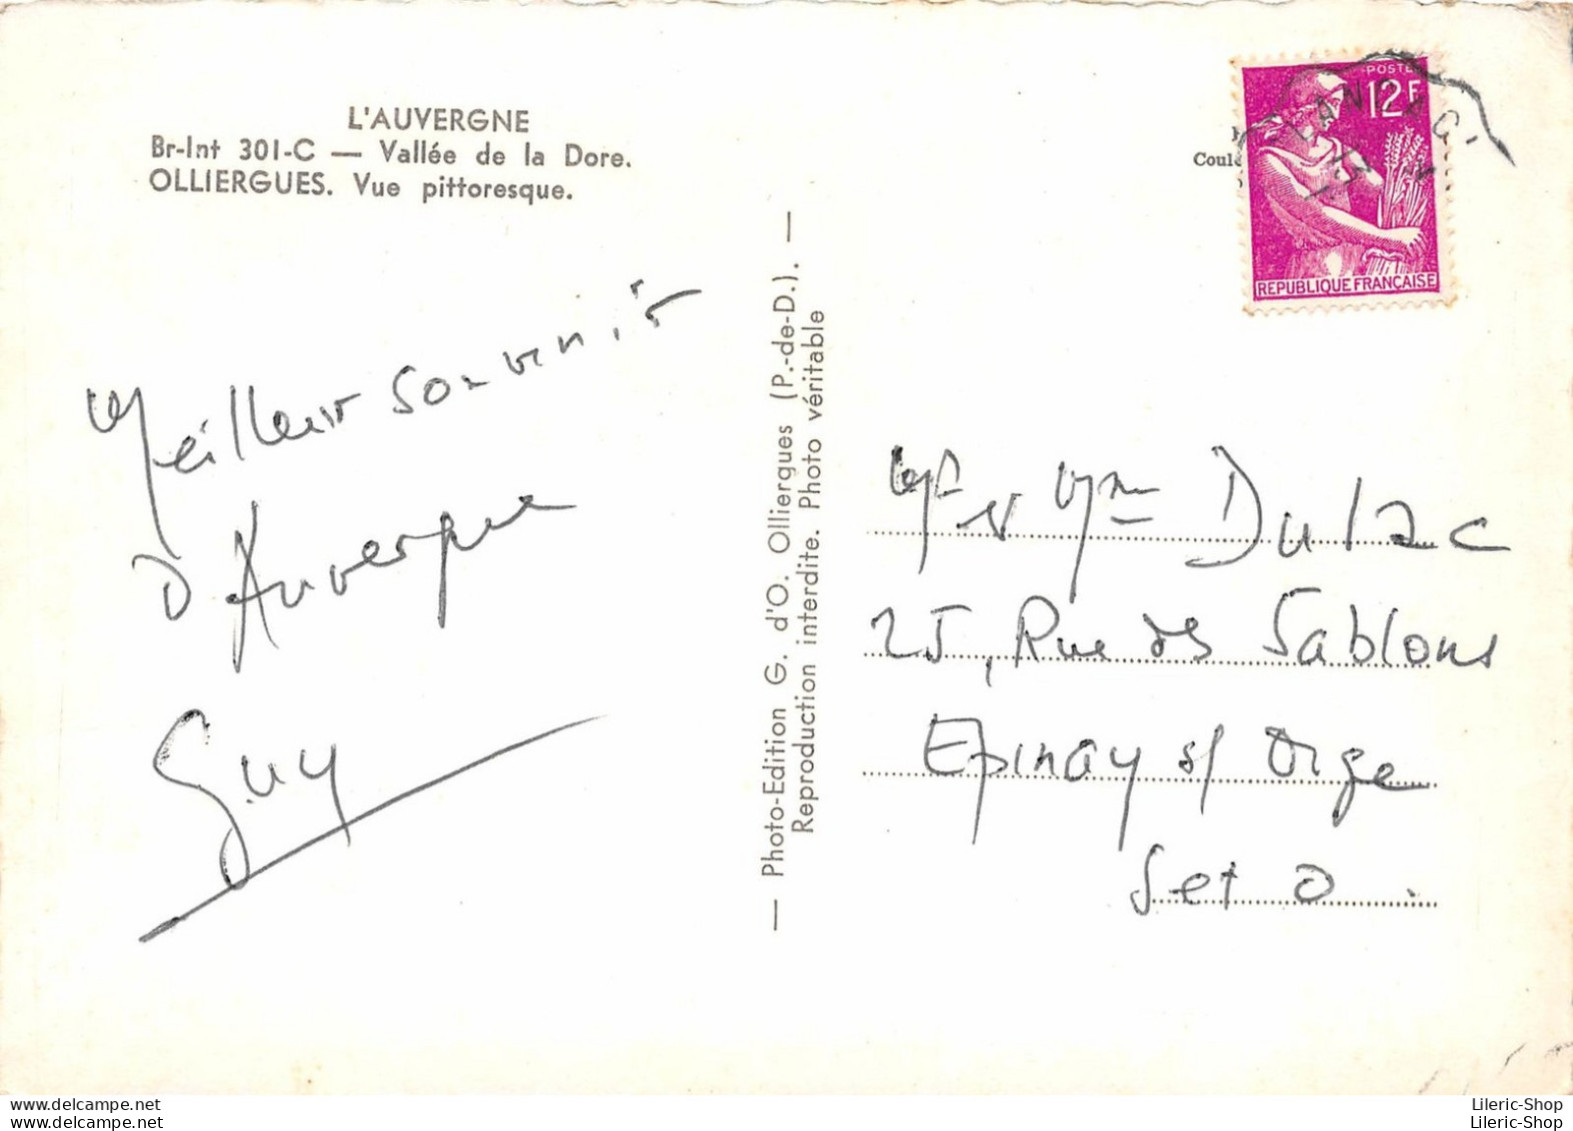 L'AUVERGNE
Br-Int 301-C — Vallée de la Dore.
OLLIERGUES. Vue pittoresque.
Coule
POSTES
12F
LANGAG
13
REPUBLIQUE FRANÇAISE
Meilleur souvenir
D'Auvergne
Guy
— Photo-Edition G. d'O. Olliergues (P.-de-D.). —
Reproduction interdite. Photo véritable
Mr et Mme Dulac
25, Rue des Sablons
Epinay s/ Orge
S et O.
Lileric-Shop
Lileric-Shop
Lileric-Shop
Lileric-Shop